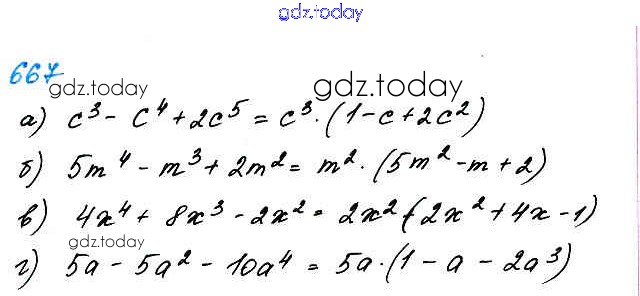 gdz.today
667
gdz.today
gdz.today
а) c³ - c⁴ + 2c⁵ = c³·(1 - c + 2c²)
б) 5m⁴ - m³ + 2m² = m²·(5m² - m + 2)
в) 4x⁴ + 8x³ - 2x² = 2x²·(2x² + 4x - 1)
gdz.today
г) 5a - 5a² - 10a⁴ = 5a·(1 - a - 2a³)